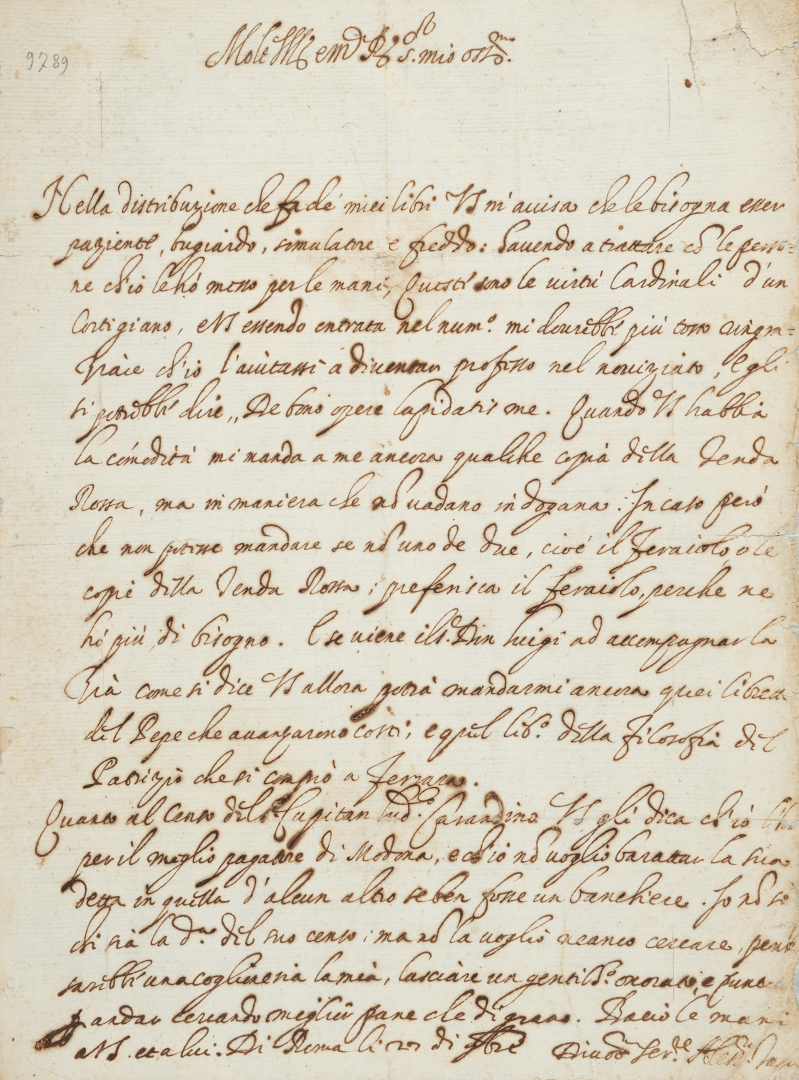 9789
Molt Ill. e md.º R. s. mio oss.mo
Nella distribuzione che fa de' miei libri VS m'avisa che le bisogna esser
paziente, bugiardo, simulatore e freddo: havendo a trattare cō le perso-
ne ch'io le hó messo per le mani, Questi sono le virtú Cardinali d'un
Cortigiano, e VS essendo entrata nel num.º mi dovrebbe piú tosto ringra-
ziare ch'io l'aiutassi a diventar professo nel noviziato, e gli
si potrebbe dire ,, De bono opere lapidatis me. Quando VS habbia
la cōmoditá mi manda a me ancora qualche copia della Secchia
Rossa, ma in maniera che nō vadano in dogana. In caso peró
che non potesse mandare se nō uno de due, cioé il feraiolo, o le
copie della Rossa; preferisca il feraiolo, perche ne
hó piú di bisogno. E se viene il s. Don luigi ad accompagnar la
come si dice VS allora potrá mandarmi ancora quei
del Pepe che avanzarono costi; e quel lib.º della filosofia del
Patrizio che si compró a Ferrara.
Quanto al Censo del s. Capitan Lud.º Carandino VS gli dica ch'io
per il meglio pagatore di Modona, e ch'io nō voglio barattar la sua
detta in quella d'alcun altro se ben fosse un banchiere. Io nō só
chi siá la d.ª del suo censo; ma nō la voglio neanco cercare, perche
sarebbe una coglioneria la mia, lasciare un gentilh.º onorato, e
andar cercando meglior pane che di grano. Bacio le mani
a VS. et a lui. Di Roma li di Devot. Ser.re